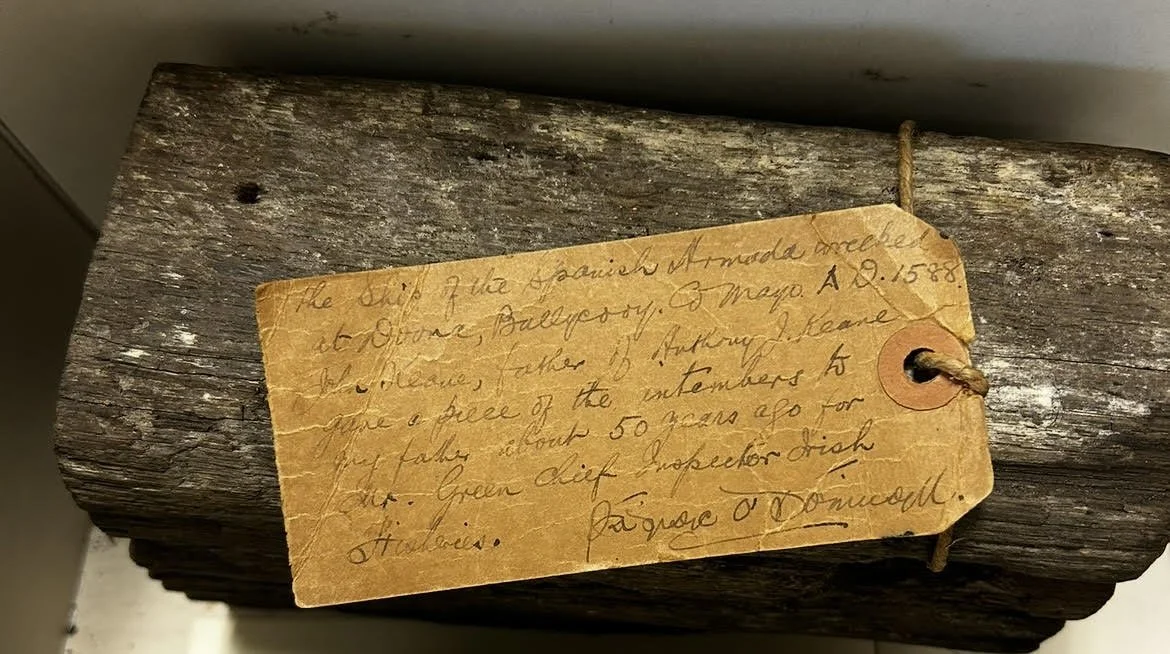 The Ship of the Spanish Armada wrecked
at Doona, Ballycroy. Co Mayo. A D. 1588.
John Keane, father of Anthony J. Keane
gave a piece of the intembers to
my father about 50 years ago for
Mr. Green Chief Inspector Irish
Fisheries.
O'Domnaill.